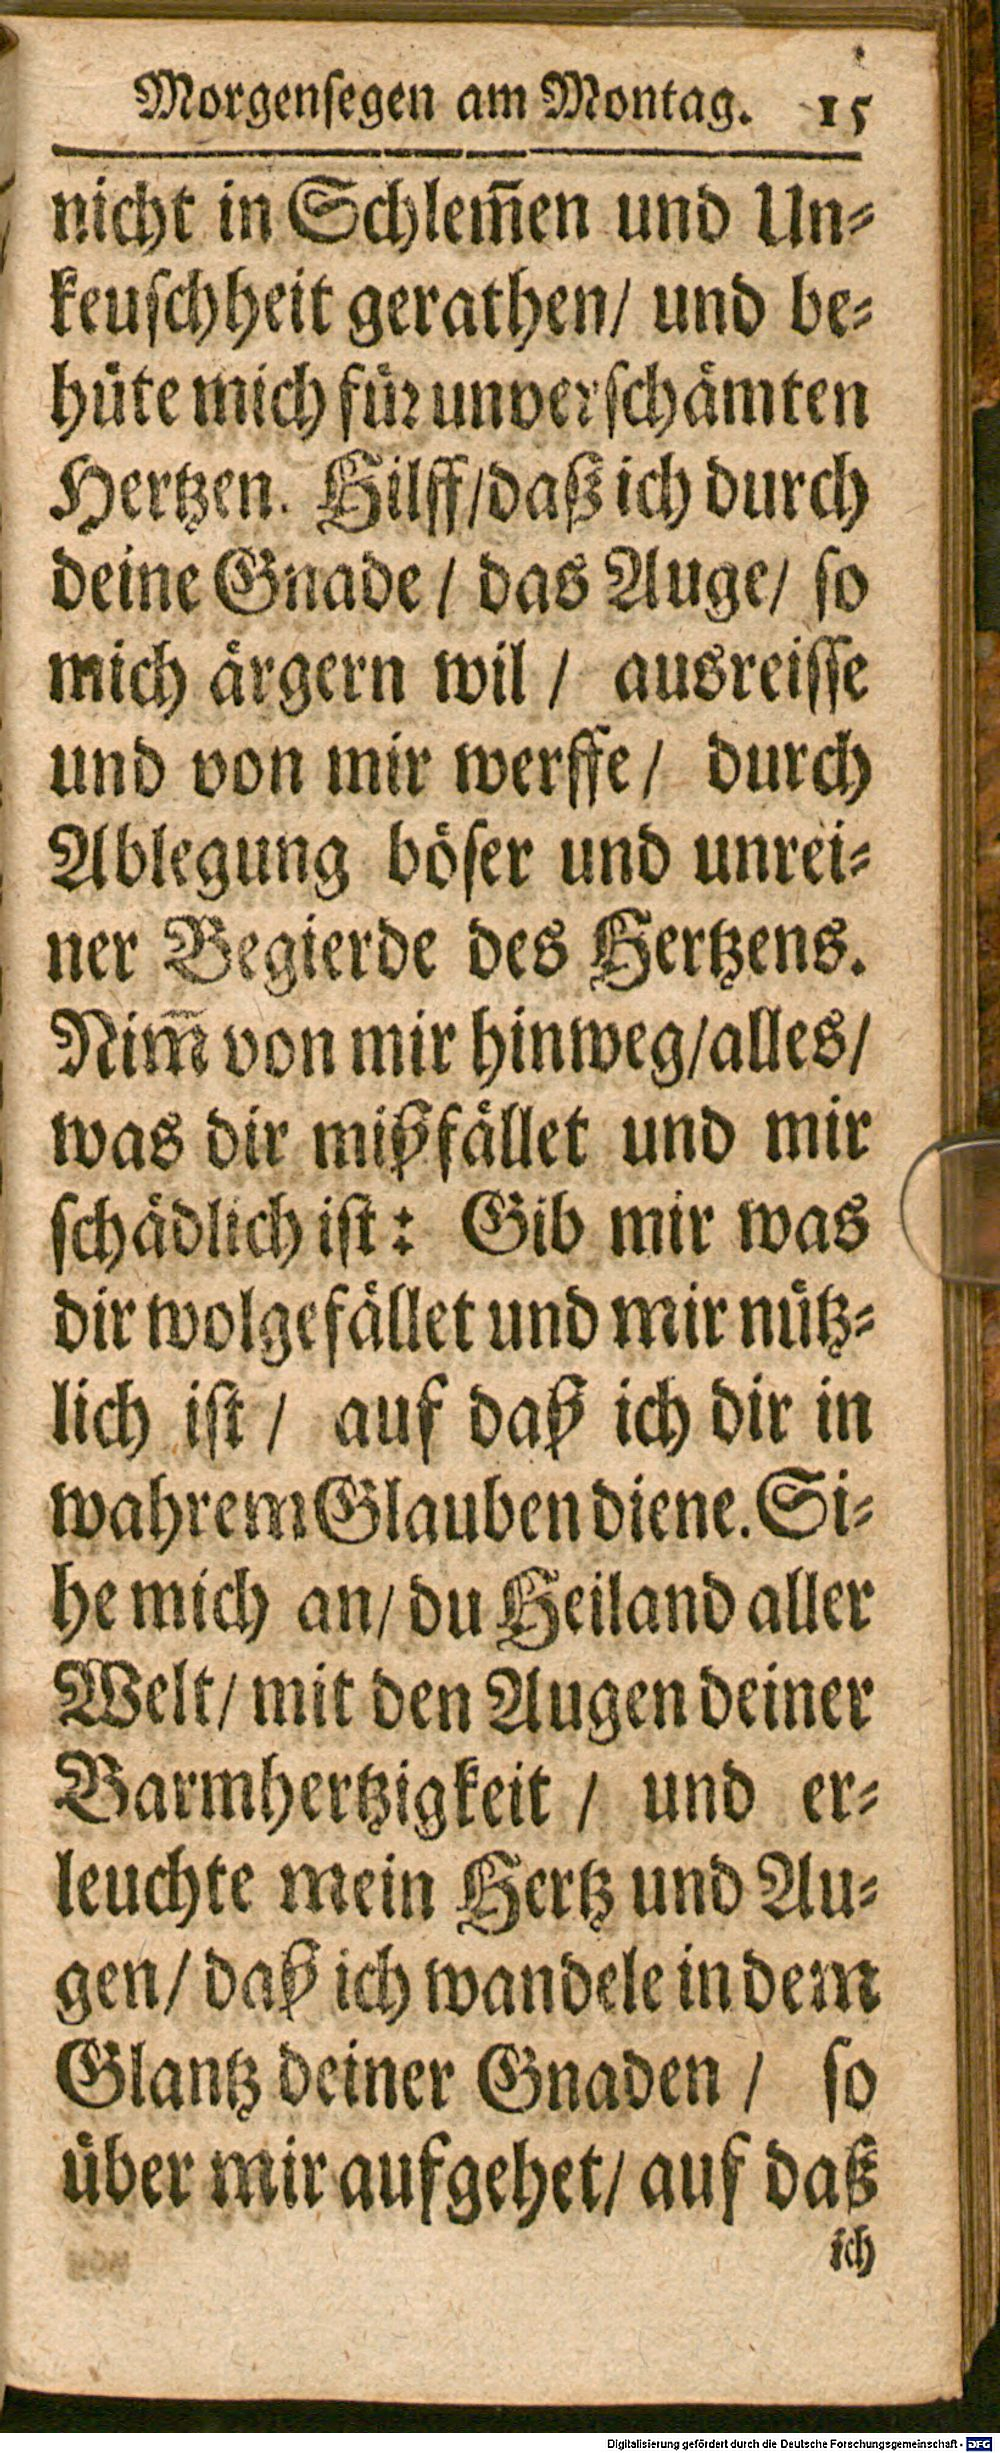 Morgenſegen am Montag. 15
nicht in Schlem̃en und Un⸗
keuſchheit gerathen/ und be⸗
huͤte mich fuͤꝛ unverſchaͤmten
Hertzen. Hilff/daß ich durch
deine Gnade / das Auge/ ſo
mich aͤrgern wil / ausreiſſe
und von mir werffe/ durch
Ablegung boͤſer und unrei⸗
ner Begierde des Hertzens.
Nim̃ von mir hinweg/alles/
was dir mißfaͤllet und mir
ſchaͤdlich iſt: Gib mir was
dir wolgefaͤllet und mir nuͤtz⸗
lich iſt / auf daß ich dir in
wahrem Glauben diene. Si⸗
he mich an/ du Heiland aller
Welt/ mit den Augen deiner
Barmhertzigkeit / und er⸗
leuchte mein Hertz und Au⸗
gen/ daß ich wandele in dem
Glantz deiner Gnaden / ſo
uͤber mir aufgehet/ auf daß
ich
Digitalisierung gefördert durch die Deutsche Forschungsgemeinschaft - DFG